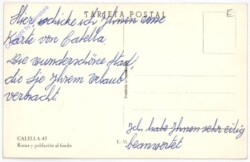 TARJETA POSTAL
Hier schicke ich Ihnen eine
Karte von Calella.
Die wunderschöne Stad,
die Sie Ihrem Urlaub
verbracht.
Ich habe Ihnen sehr eilig
beantwortet
CALELLA 45
Rocas y población al fondo